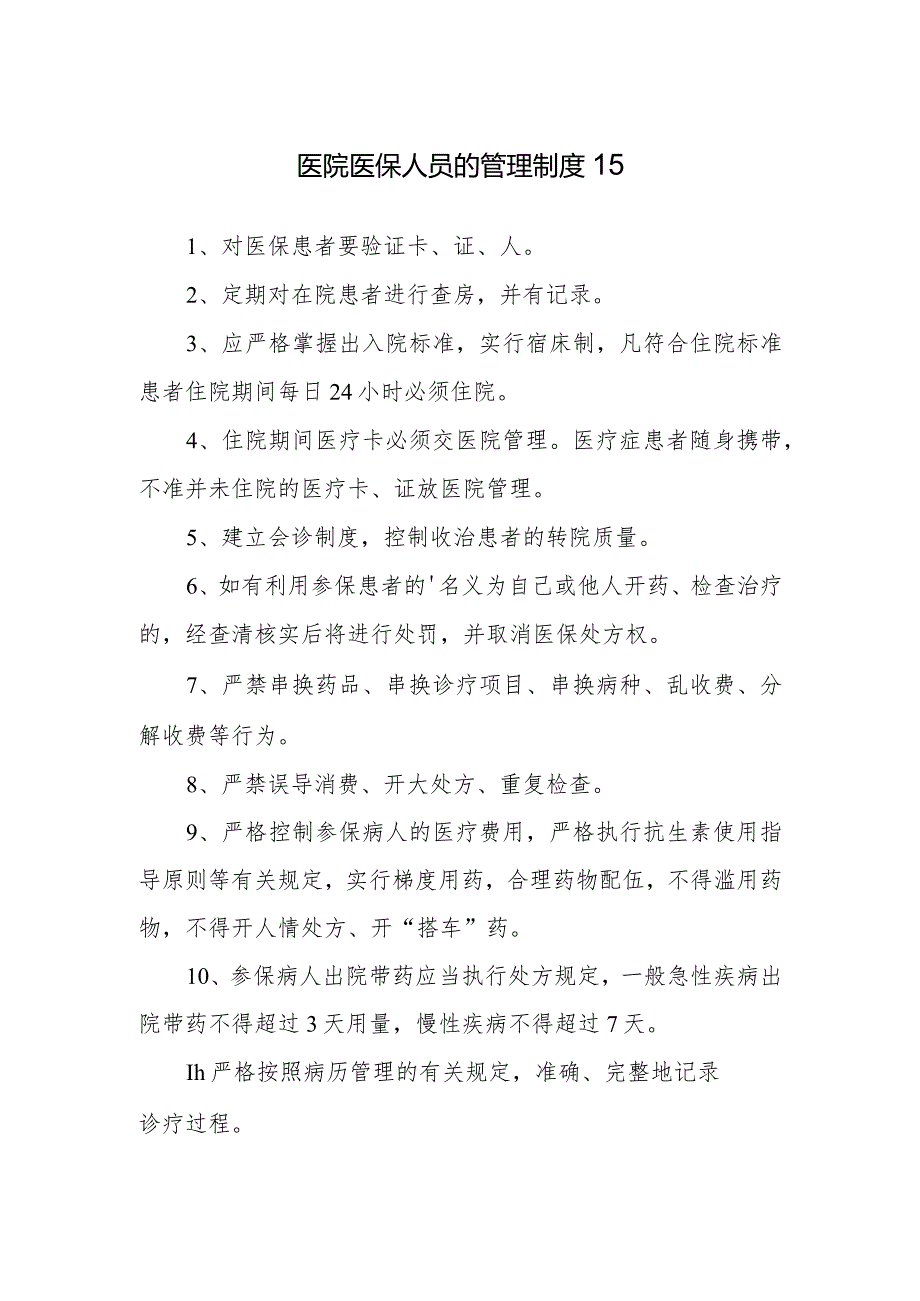 医院医保人员的管理制度 15
1、对医保患者要验证卡、证、人。
2、定期对在院患者进行查房，并有记录。
3、应严格掌握出入院标准，实行宿床制，凡符合住院标准
患者住院期间每日 24 小时必须住院。
4、住院期间医疗卡必须交医院管理。医疗症患者随身携带，
不准并未住院的医疗卡、证放医院管理。
5、建立会诊制度，控制收治患者的转院质量。
6、如有利用参保患者的'名义为自己或他人开药、检查治疗
的，经查清核实后将进行处罚，并取消医保处方权。
7、严禁串换药品、串换诊疗项目、串换病种、乱收费、分
解收费等行为。
8、严禁误导消费、开大处方、重复检查。
9、严格控制参保病人的医疗费用，严格执行抗生素使用指
导原则等有关规定，实行梯度用药，合理药物配伍，不得滥用药
物，不得开人情处方、开“搭车”药。
10、参保病人出院带药应当执行处方规定，一般急性疾病出
院带药不得超过 3 天用量，慢性疾病不得超过 7 天。
Ih 严格按照病历管理的有关规定，准确、完整地记录
诊疗过程。